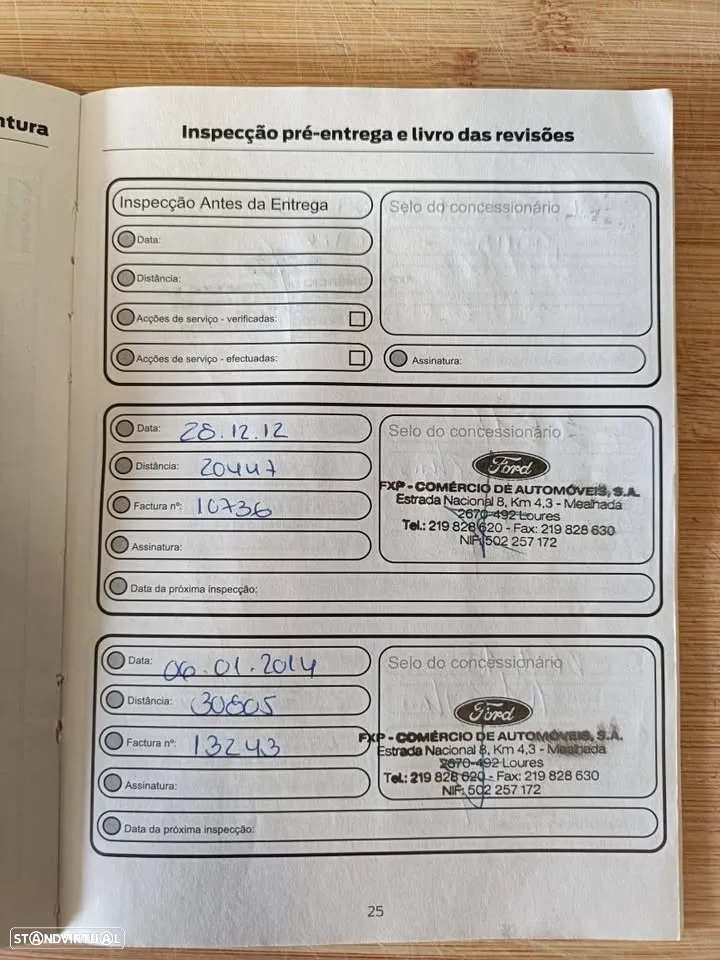 ntura
Inspecção pré-entrega e livro das revisões
Inspecção Antes da Entrega
Selo do concessionário
Data:
Distância:
Acções de serviço - verificadas:
Acções de serviço - efectuadas:
Assinatura:
Data: 28.12.12
Selo do concessionário
Distância: 20447
Ford
FXP - COMÉRCIO DE AUTOMÓVEIS, S.A.
Factura nº: 10736
Estrada Nacional 8, Km 4,3 - Mealhada
2670-492 Loures
Tel.: 219 828 620 - Fax: 219 828 630
NIF: 502 257 172
Assinatura:
Data da próxima inspecção:
Data: 06.01.2014
Selo do concessionário
Distância: 30805
Ford
Factura nº: 13243
FXP - COMÉRCIO DE AUTOMÓVEIS, S.A.
Estrada Nacional 8, Km 4,3 - Mealhada
2670-492 Loures
Tel.: 219 828 620 - Fax: 219 828 630
NIF: 502 257 172
Assinatura:
Data da próxima inspecção:
25
STANDVIRTUAL